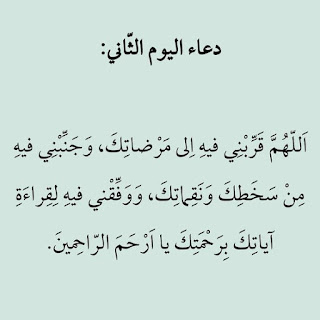 دعاء اليوم الثّاني:
اَللّهُمَّ قَرِّبْنِي فيهِ اِلى مَرْضاتِكَ، وَجَنِّبْنِي فيهِ
مِنْ سَخَطِكَ وَنَقِماتِكَ، وَوَفِّقْني فيهِ لِقِراءَةِ
آياتِكَ بِرَحْمَتِكَ يا اَرْحَمَ الرّاحِمينَ.